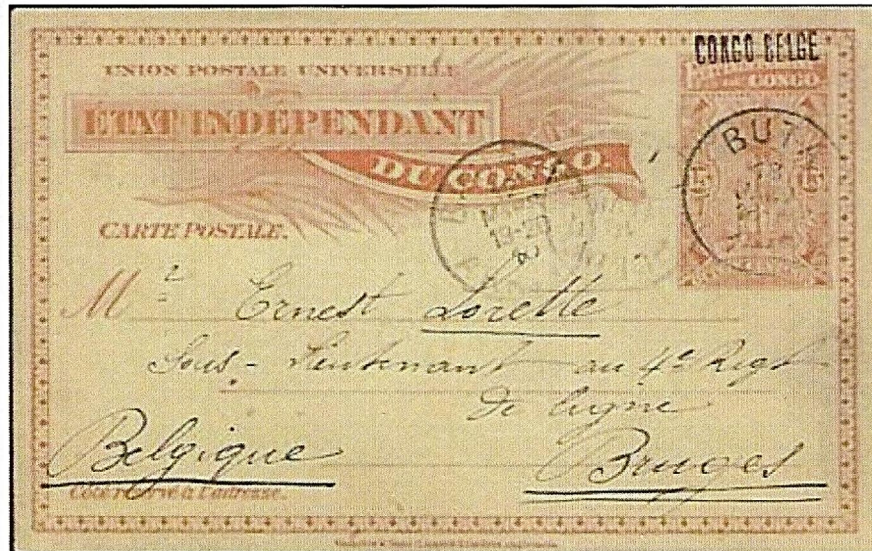 CONGO BELGE
UNION POSTALE UNIVERSELLE
ÉTAT INDÉPENDANT
DU CONGO.
CONGO
15 15
BUT
CARTE POSTALE.
Mr Ernest Lorette
Sous-Lieutenant au 4e Regt
de ligne
Belgique Bruges
Côté réservé à l'adresse.